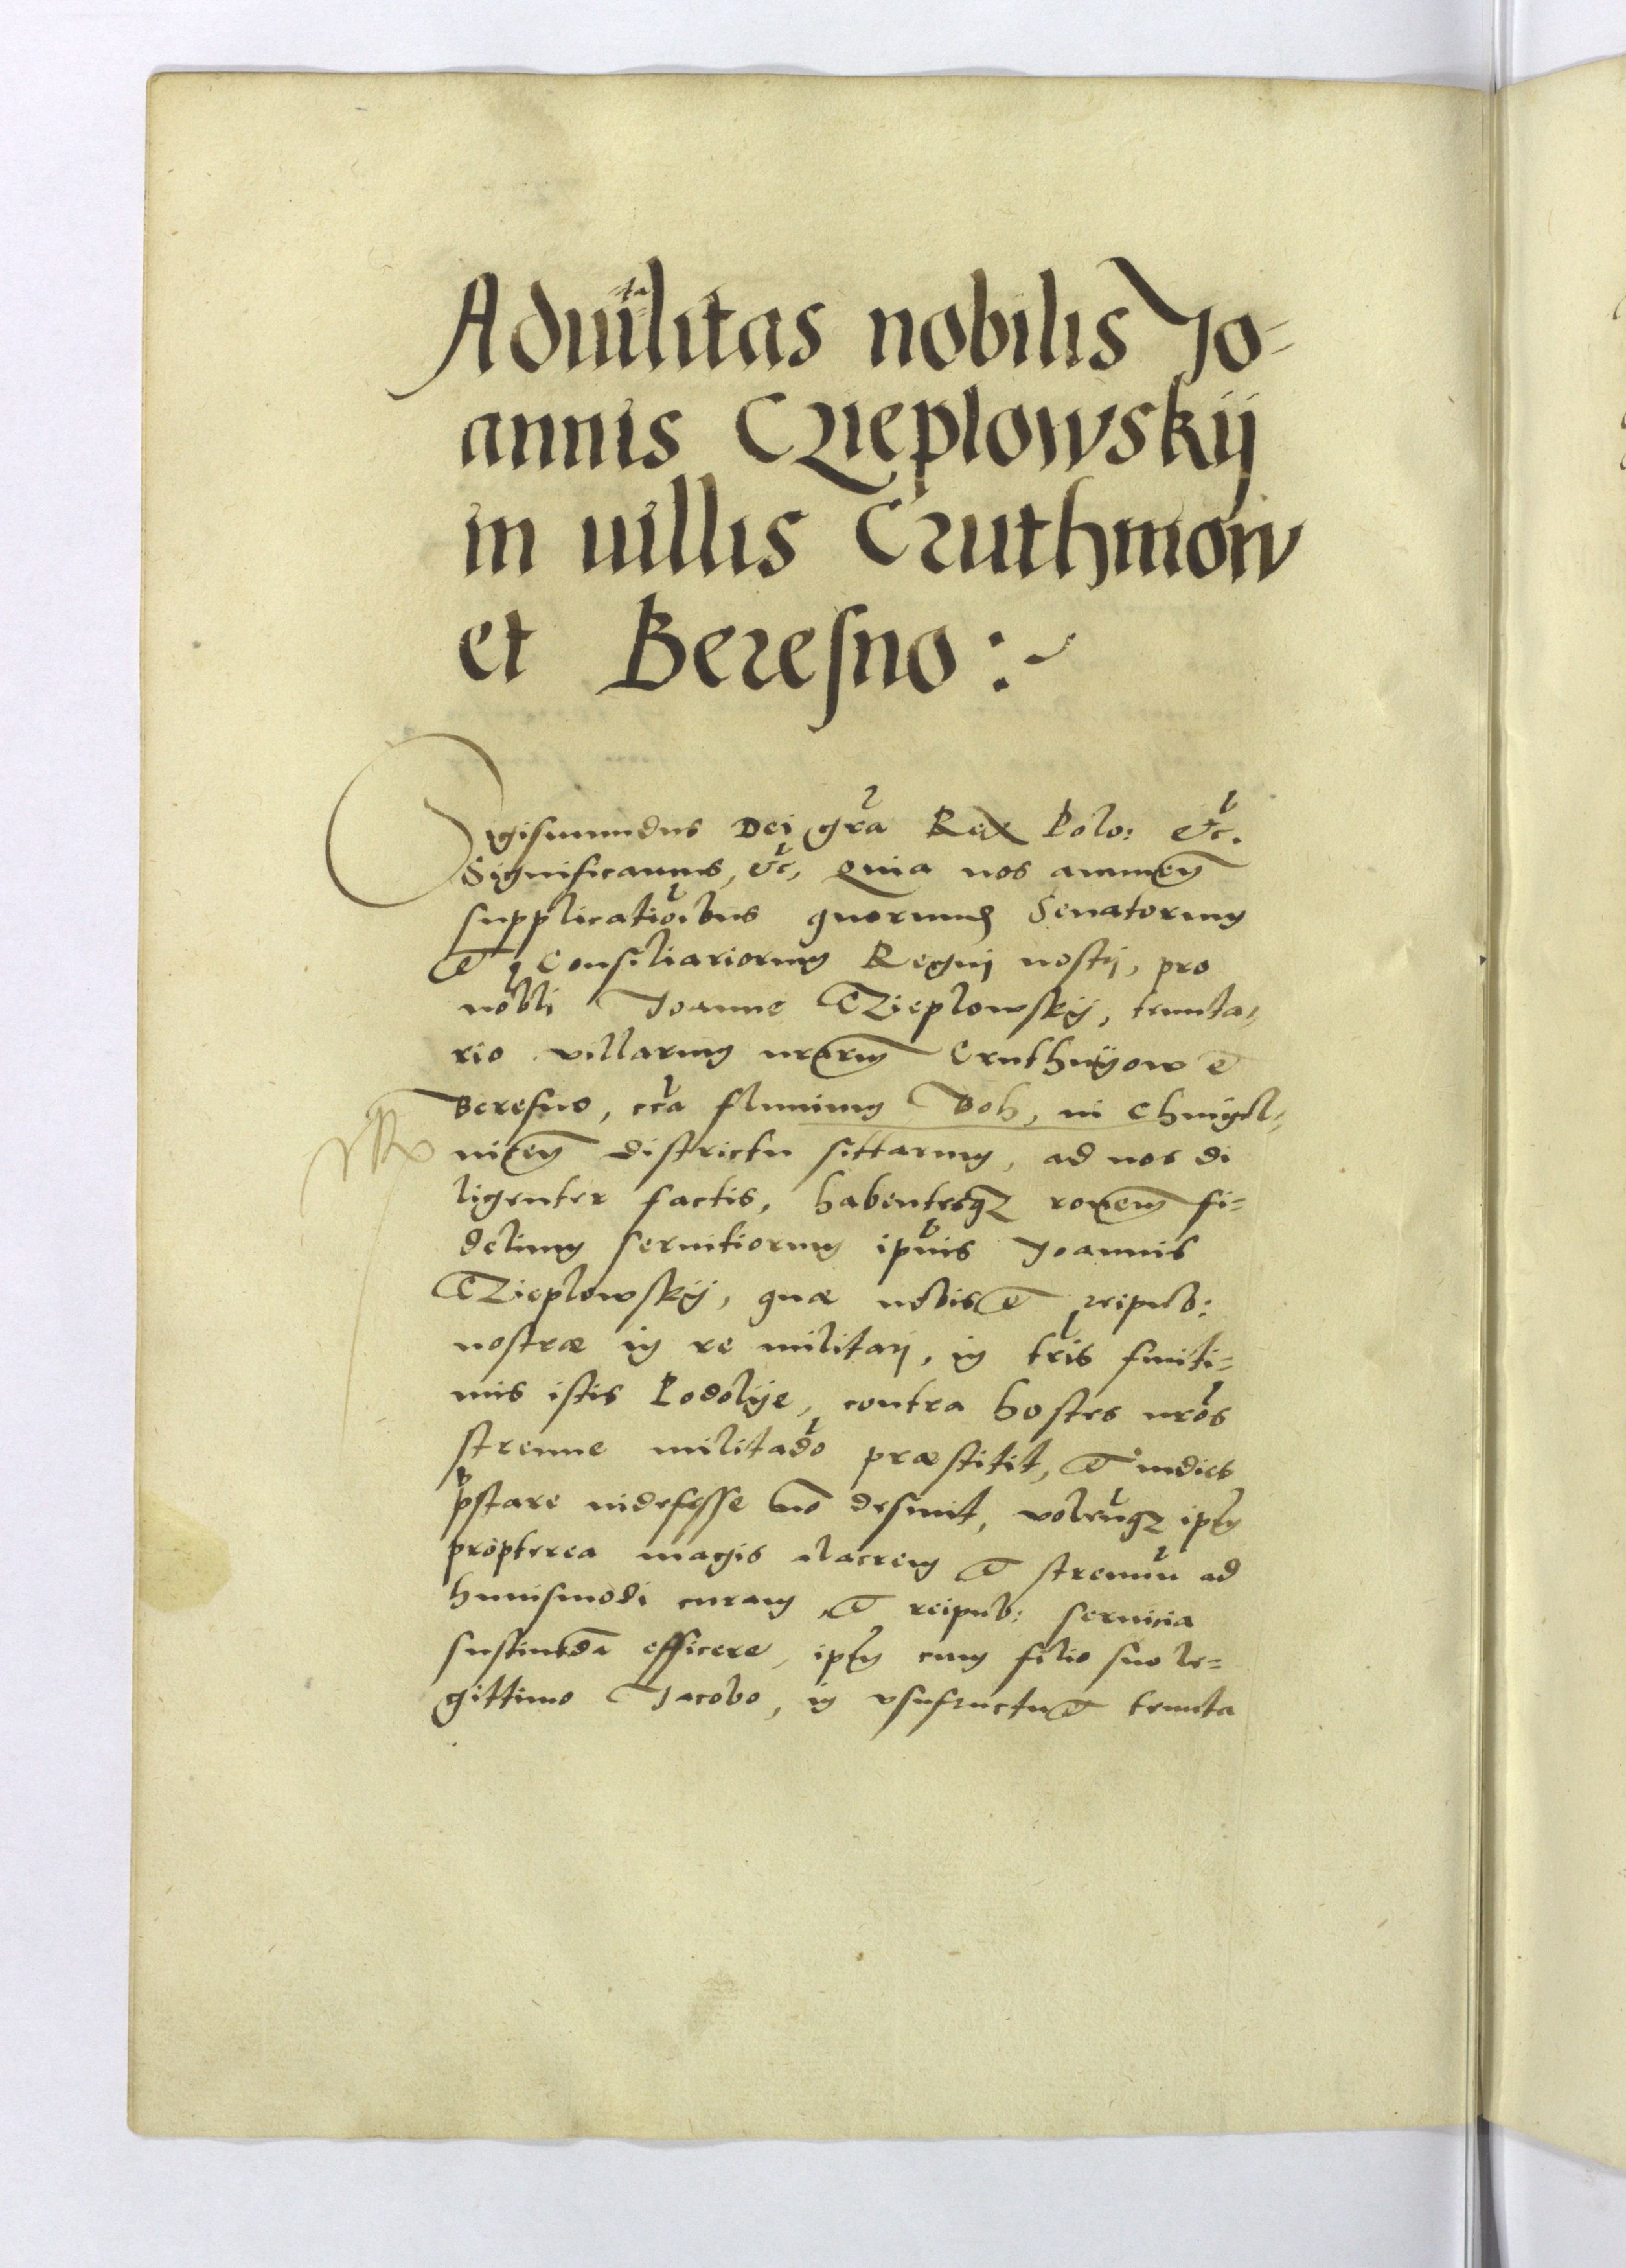 Aduitalitas nobilis Jo-
annis Czieplowskij
in uillis Cruthniow
et Beresno:
Sigismundus Dei gra Rex Polo: etc.
Significamus, etc, Quia nos annuen
supplicatiōibus quorund Senatorum
et Consiliariorum Regnj nostrj, pro
nobli Joanne Czieplowskÿ, tenuta-
rio villarum nrarum Cruthnÿow et
Beresno, cca fluuium Boh, in Chmÿel-
nicen districtu sittarum, ad nos di
ligenter factis, habentesqz ronem fi-
delium seruitiorum ipius Joannis
Czieplowskÿ, quæ nobis et reipub:
nostræ in re militarj, in tris finiti-
mis istis Podolÿe, contra hostes nros
strenue militādo præstitit, et indies
pstare indefesse no desinit, volenqz ipm
propterea magis alacrem et strenuū ad
huiusmodi curam et reipub: seruicia
sustinēda efficere, ipm cum filio suo le-
gittimo Jacobo, in vsufructu et tenuta